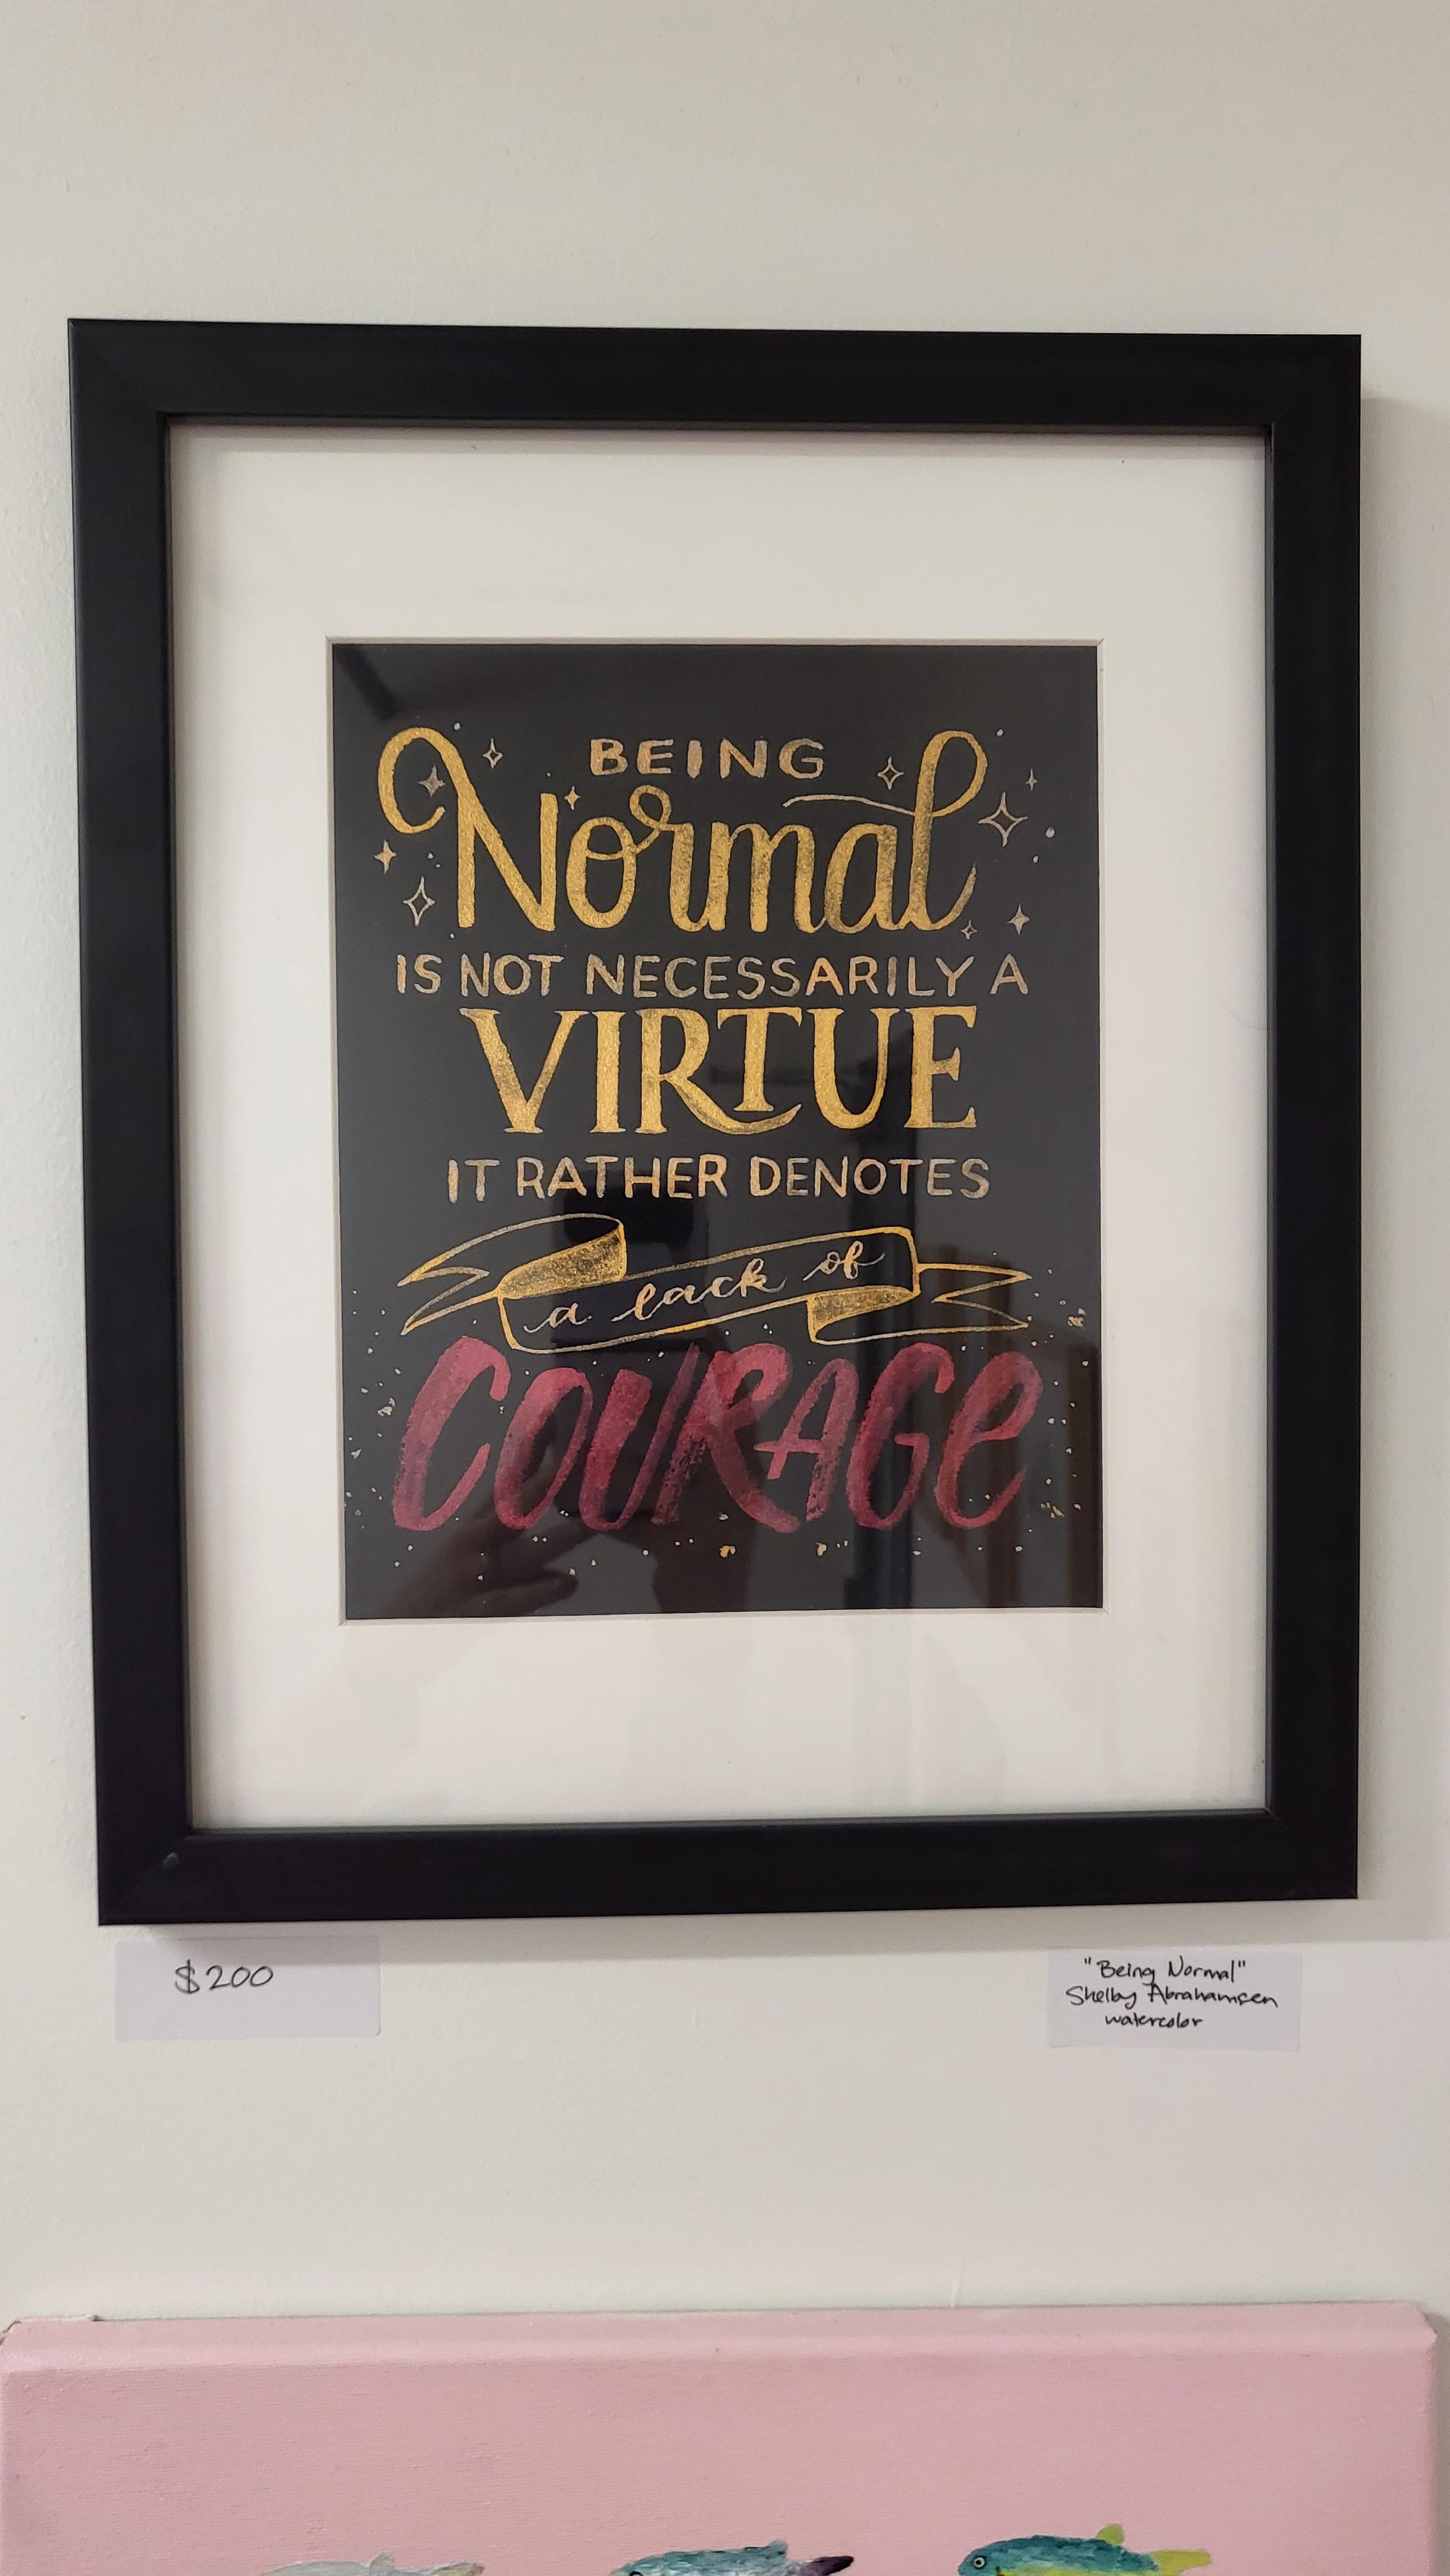 BEING
Normal
IS NOT NECESSARILY A
VIRTUE
IT RATHER DENOTES
a lack of
COURAGE
$200
"Being Normal"
Shelby Abrahamsen
watercolor